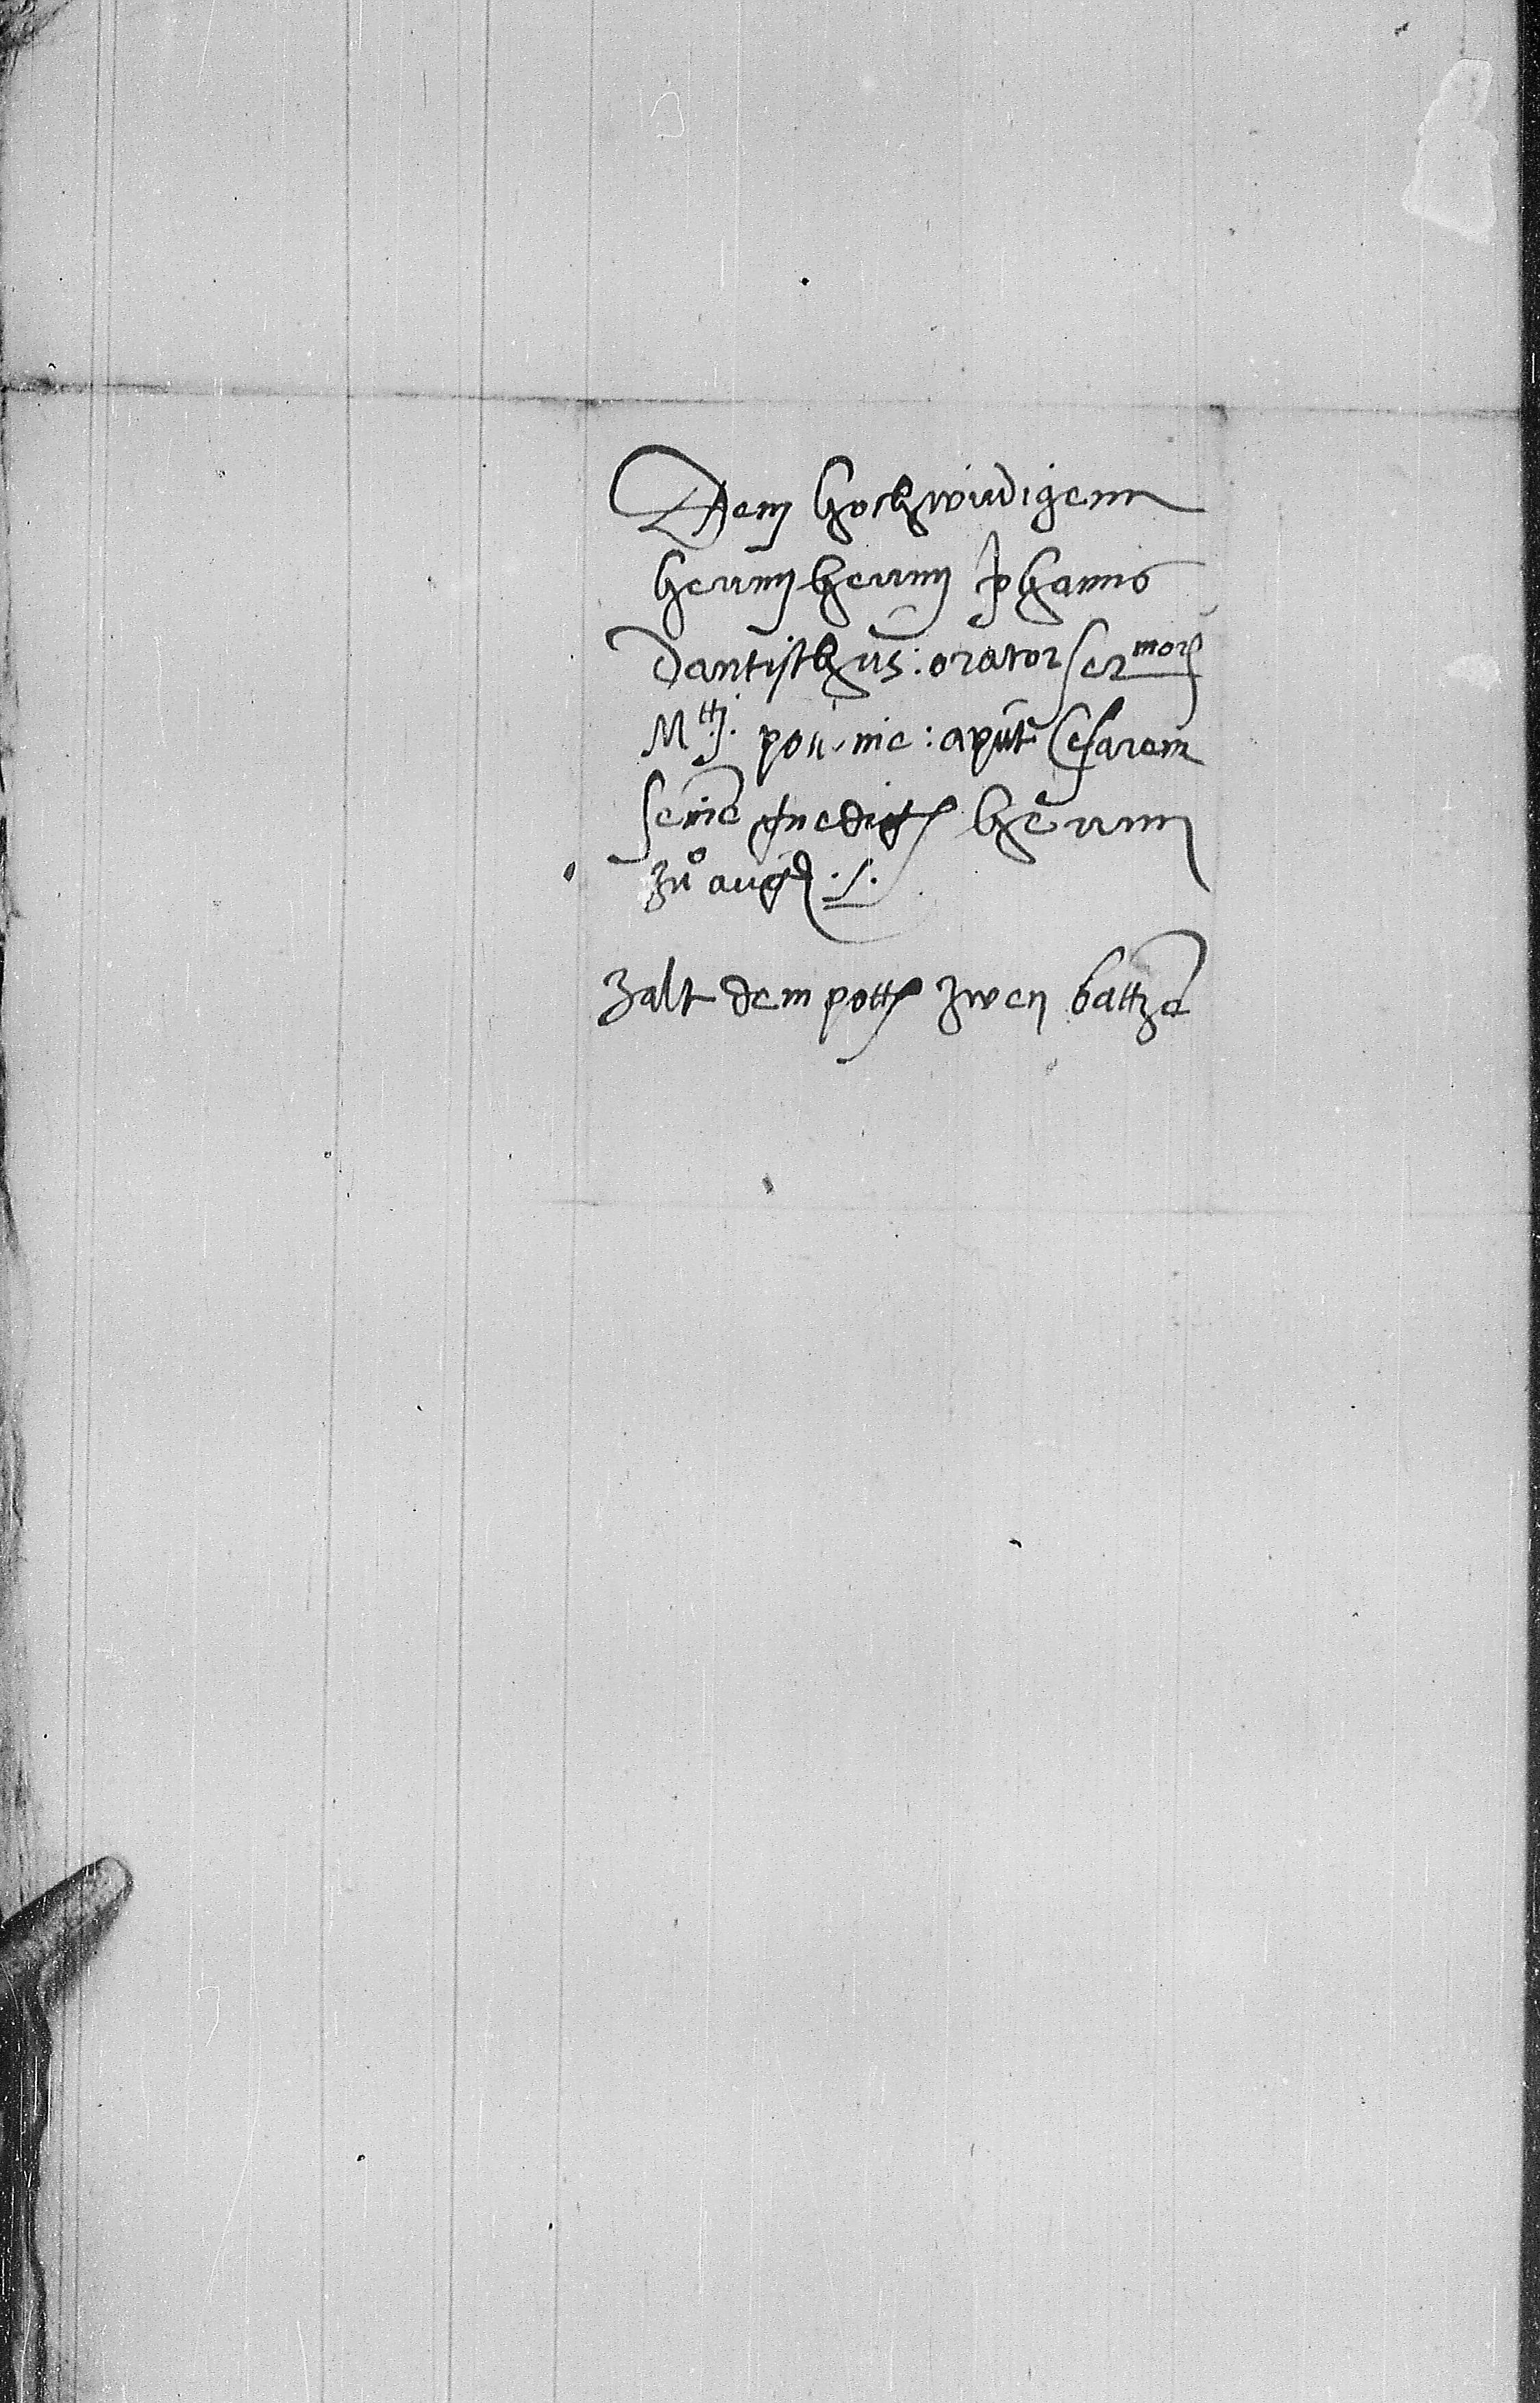 Dem hochwirdigenn
herrnn herrnn Johannis
Dantisthus: orator Ser^mor
M^ttj. polonie: aput Cesarem
seinē gnedigen herrnn
zů augs .s.
zalt dem potten zwen battzē